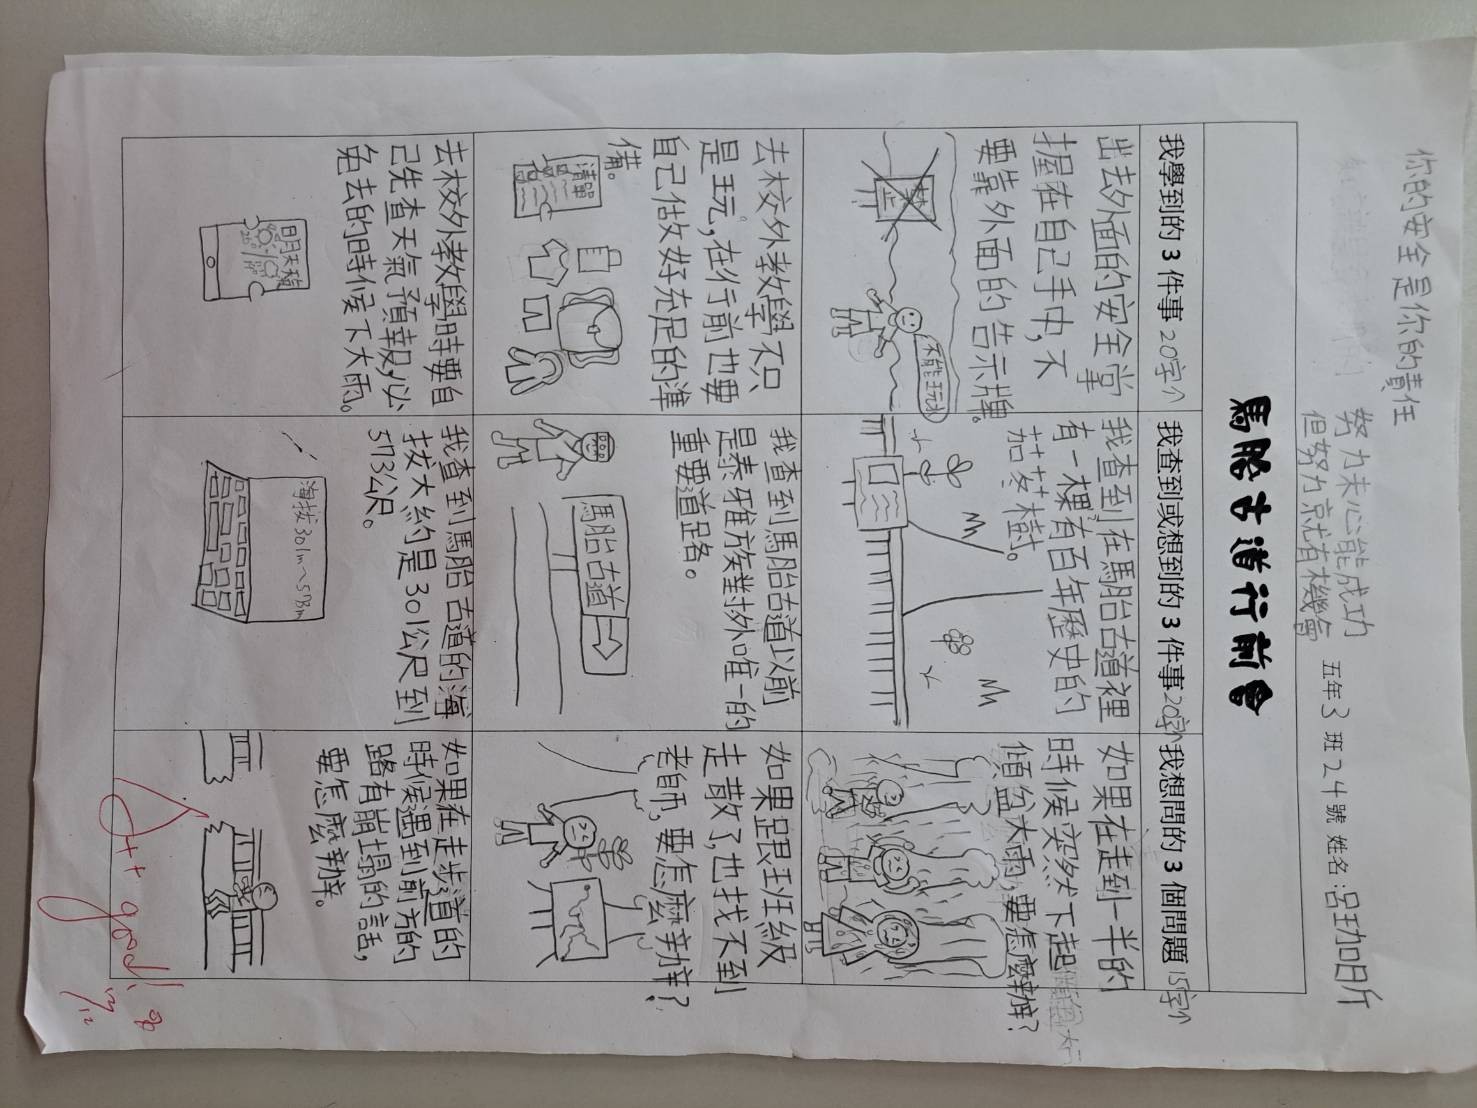 你的安全是你的責任
努力未必能成功
但努力京尤有機會
五年3班24號 姓名:呂玨加日斤
馬胎古道行前會
我學到的3件事 20字↑
我查到或想到的3件事20字↑
我想問的3個問題 15字↑
出去外面的安全掌
握在自己手中,不
要靠外面的告示牌。
禁止
不能玩水
我查到在馬胎古道裡
有一棵有百年歷史的
茄苳樹。
如果在走到一半的
時候突然下起
傾盆大雨,要怎麼辦?
去校外教學不只
是玩,在行前也要
自己估攵好充足的準
備。
清單
我查到馬胎古道以前
是泰雅族對外唯一的
重要道路。
馬胎古道
如果跟班級
走散了,也找不到
老師,要怎麼辦?
去校外教學時要自
己先查天氣預報,必
免去的時候下大雨。
明天天氣
我查到馬胎古道的海
拔大約是301公尺到
573公尺。
海拔301m~573m
如果在走步道的
時候遇到前方的
路有崩塌的話,
要怎麼辦。
A++ good!